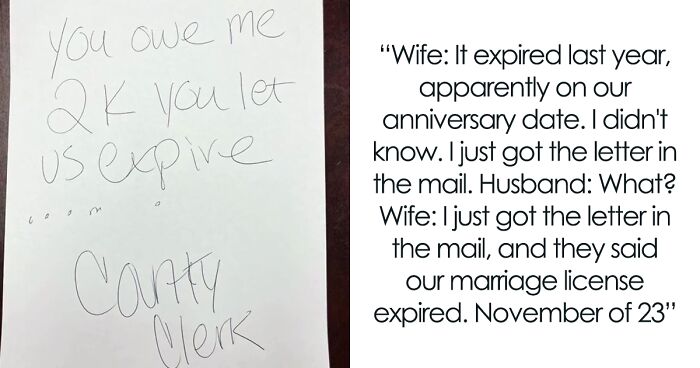 you owe me
2K you let
us expire
County
Clerk
“Wife: It expired last year,
apparently on our
anniversary date. I didn't
know. I just got the letter in
the mail. Husband: What?
Wife: I just got the letter in
the mail, and they said
our marriage license
expired. November of 23”